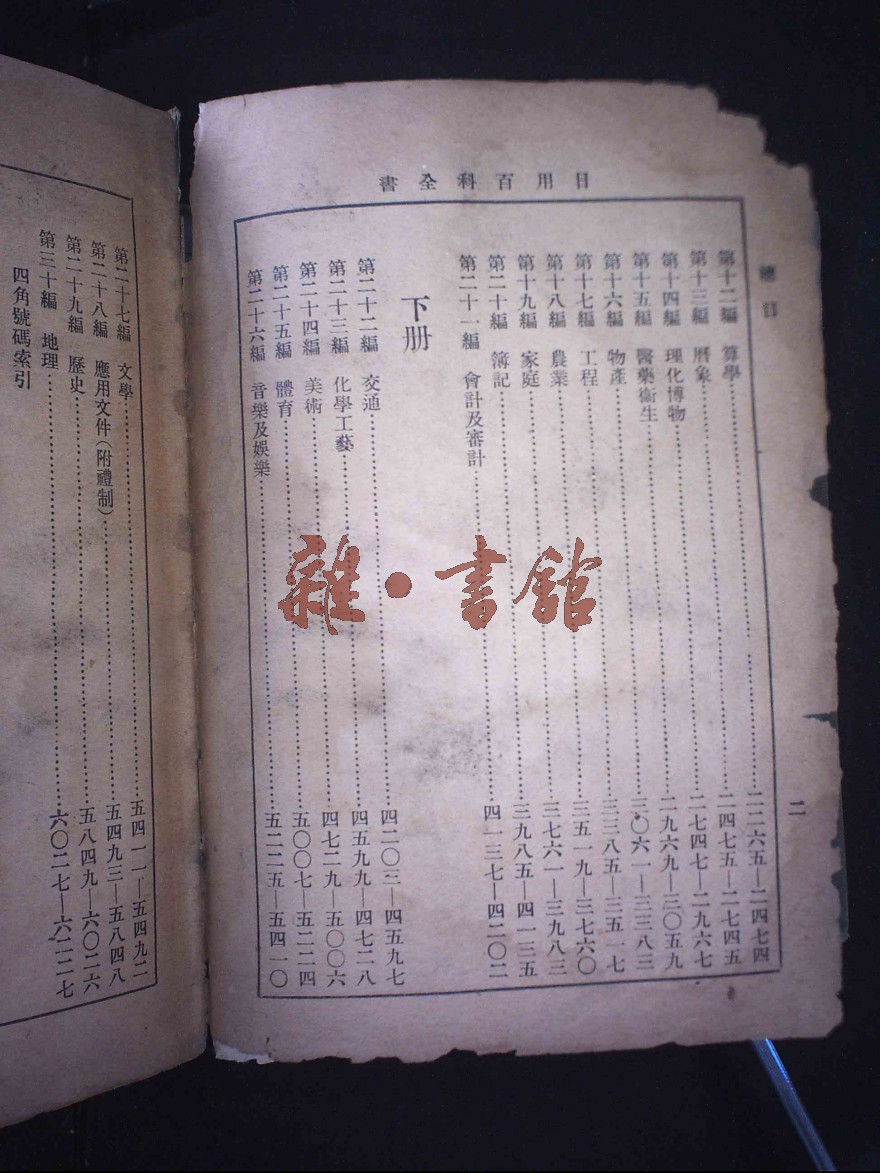 日用百科全書
總目
二
第十二編 算學……二二六五—二四七四
第十三編 曆象……二四七五—二七四五
第十四編 理化博物……二七四七—二九六七
第十五編 醫藥衛生……二九六九—三〇五九
第十六編 物產……三〇六一—三三八三
第十七編 工程……三三八五—三五一七
第十八編 農業……三五一九—三七六〇
第十九編 家庭……三七六一—三九八三
第二十編 簿記……三九八五—四一三五
第二十一編 會計及審計……四一三七—四二〇二
下册
第二十二編 交通……四二〇三—四五九七
第二十三編 化學工藝……四五九九—四七二八
第二十四編 美術……四七二九—五〇〇六
第二十五編 體育……五〇〇七—五二二四
第二十六編 音樂及娛樂……五二二五—五四一〇
第二十七編 文學……五四一一—五四九二
第二十八編 應用文件(附禮制)……五四九三—五八四八
第二十九編 歷史……五八四九—六〇二六
第三十編 地理……六〇二七—六二二七
四角號碼索引
雜·書館